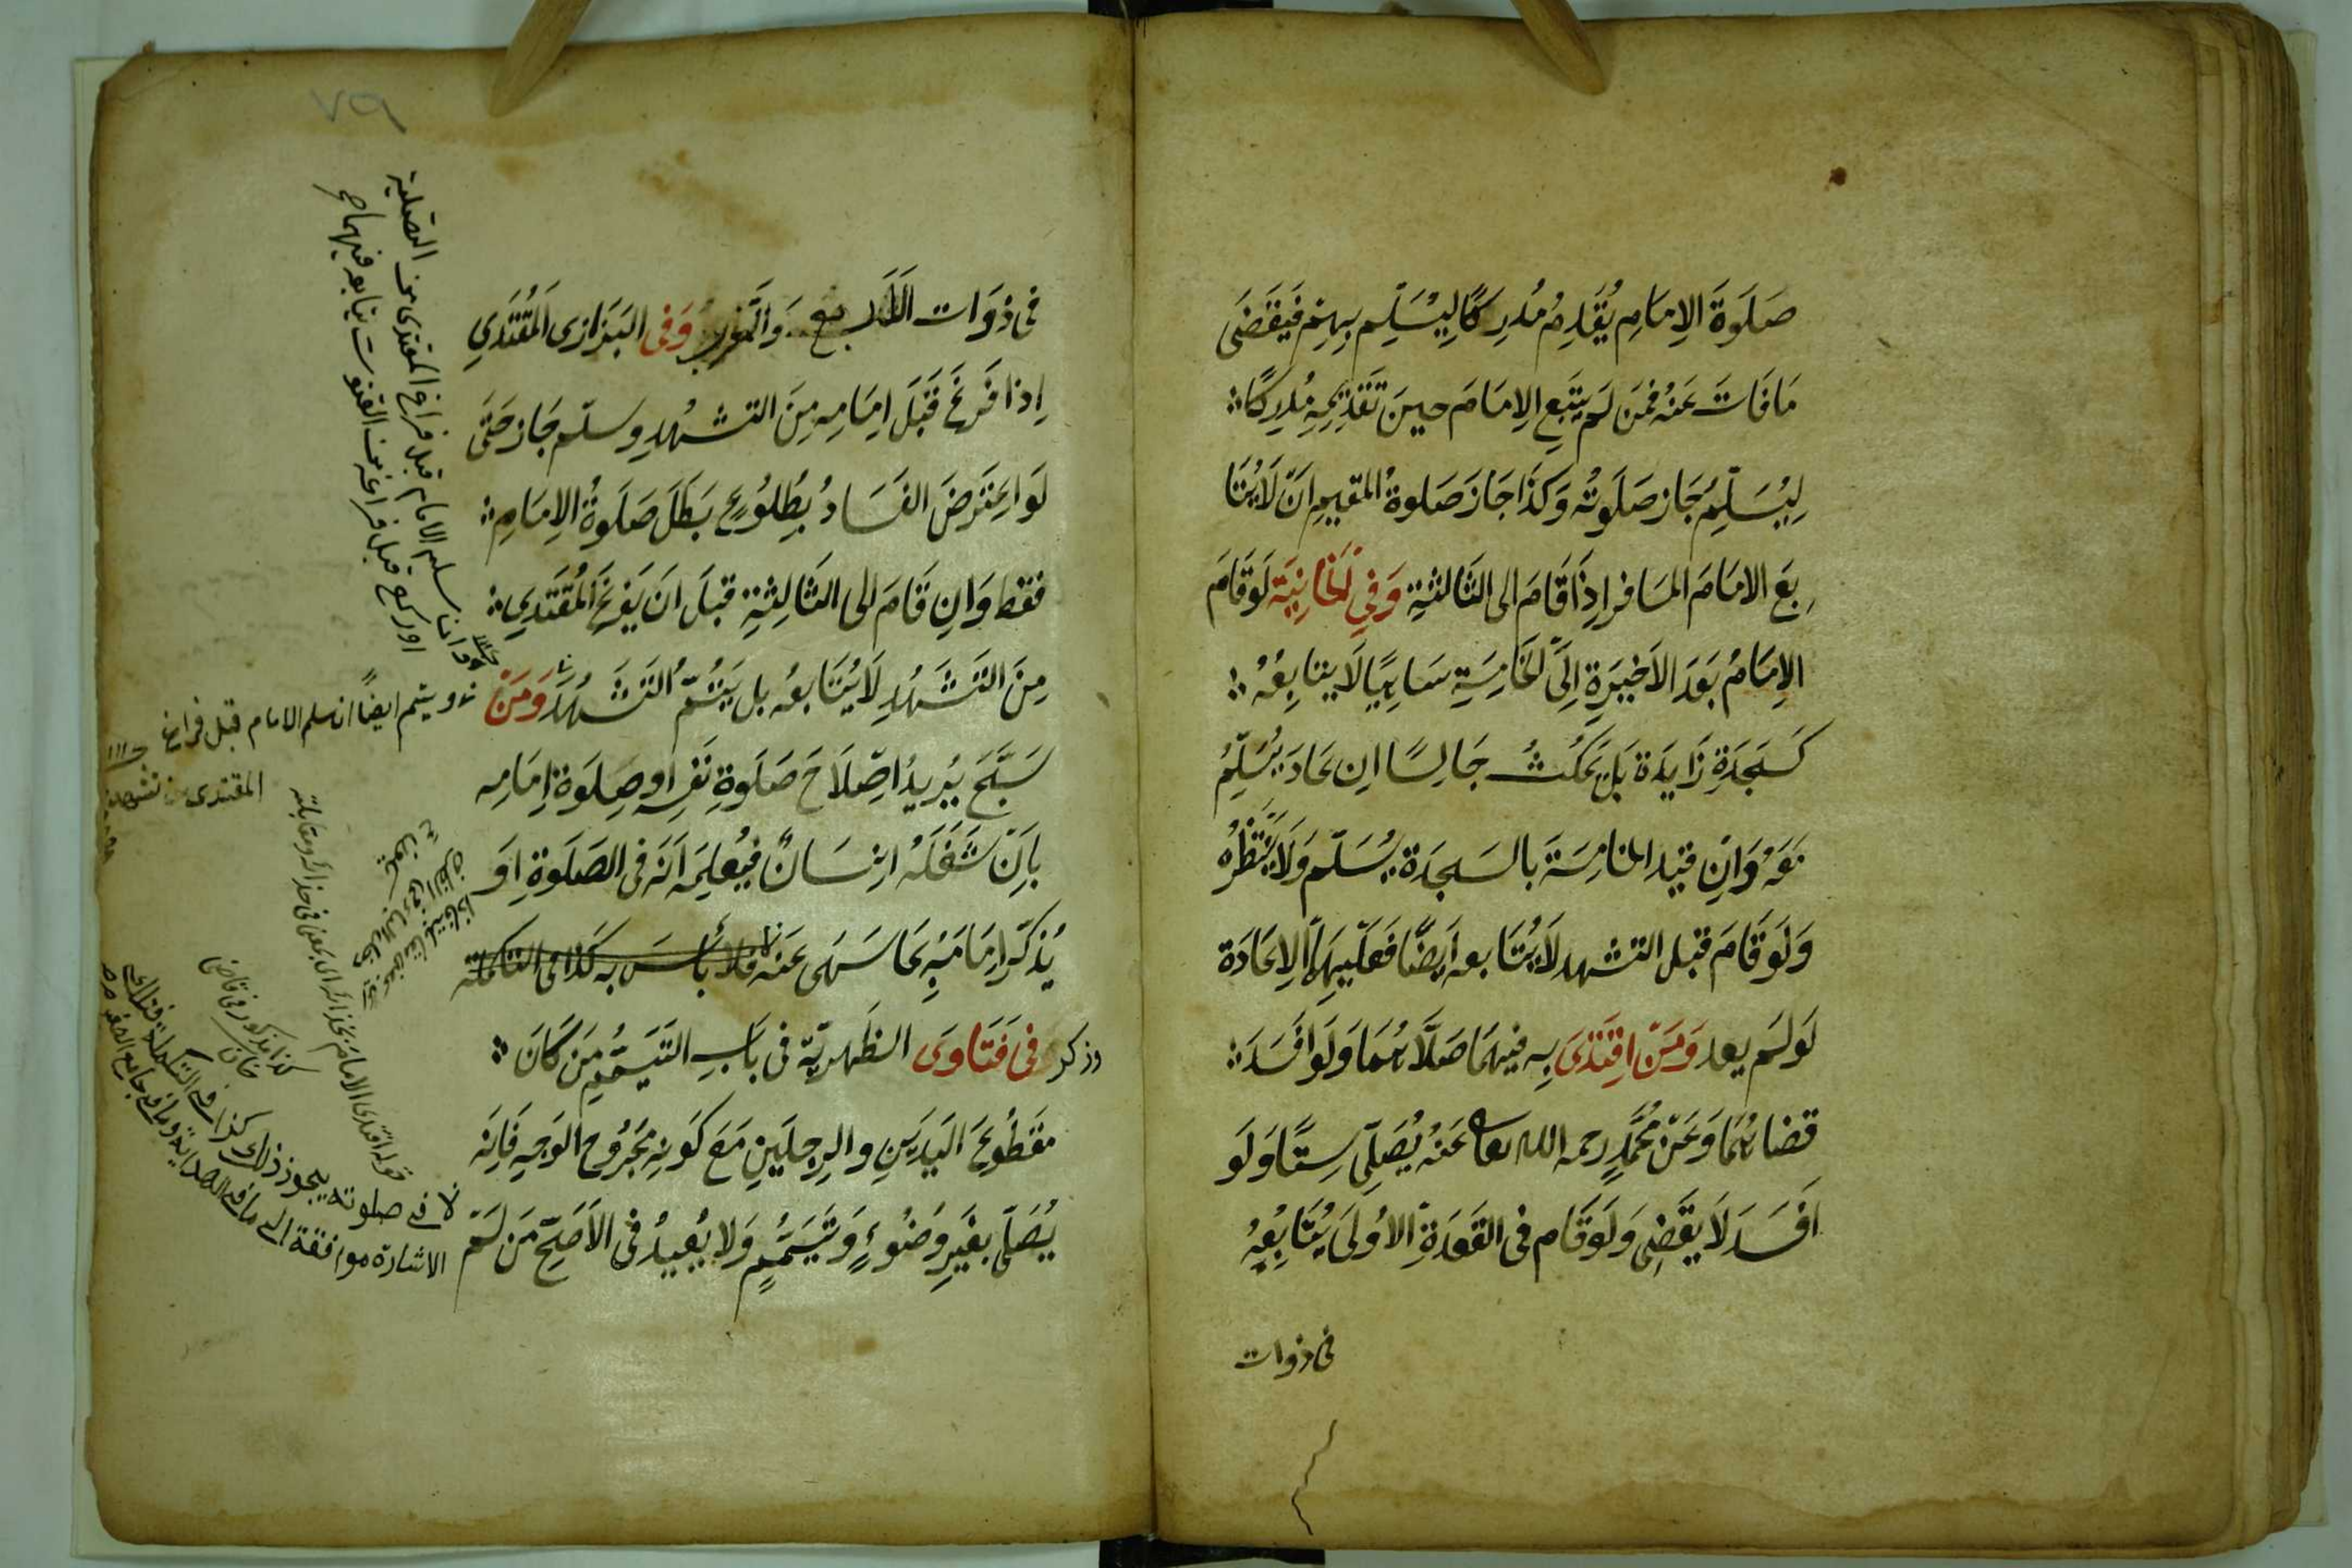 صَلَوةَ الاِمَامِ يُقَدِمُ مُدرِكًا لِيُسَلِّم بِهِم فَيَقضَى
مَا فَاتَ عَنهُ فمَن لَم يتَبِع الاِمَامَ حينَ تَقدِيمِه مُدرِكًا
لِيُسَلِّمُ جَاز صَلَوتُه وَكَذَا جَازَ صَلوة المقيمِ اَن لَايُتَا
بِعَ الامَامَ المسَافر اِذَا قَامَ الى الثَالثَةِ وَفِي الخَانِيَة لَو قَامَ
الاِمَامُ بَعدَ الاَخيرَةِ اِلَى الخَامِسَةِ سَاهِيًا لَا يتابِعُهُ
كَسَجدَةِ زَايدَة بَل يَمكُث جَالِسًا اِن عَادَ يُسَلِّمُ
مَعَهُ وَاِن قيد الخامِسَةَ بالسَجدَة يُسَلّم وَلَا يَنتَظِرُه
وَلَو قَامَ قبَل التشهد لَا يُتَابعه اَيضًا فَعَلَيهِمَا الاِعَادَة
لَو لَم يعد وَمَن اِقتَدَى بِه فيهمَا صَلَّاهُمَا وَلَو اَفسَدَ
قضاهُمَا وَعَن مُحَمَّدٍ رحمه الله تعا عَنهُ يُصَلِّى سِتًّا وَلَو
اَفسَدَ لَا يَقضِى وَلَو قَام فى القَعدَةِ الاُولَى يُتَابِعُهُ
فى ذوات
٧٩
فى ذوَات الاَربع وَالمَغرب وَفى البَزازى المُقتَدِي
اِذا فَرغَ قَبلَ اِمَامِه مِنَ التشهُدِ وسلّم جَاز حَتَّى
لَو اعِترَضَ الفَسَادُ بِطُلُوعٍ بَطَلَ صَلَوةُ الاِمَامِ
فقط وَاِن قَامَ الى الثَالِثةِ قبَلَ اَن يَفرغَ المُقتَدِي
مِنَ التَشَهُدِ لَا يُتَابعُه بل يَتُمُّ التَشَهُدَ وَمَن
سَبَّحَ يُرِيدُ اصِلَاحَ صَلَوةِ نَفسِه او صِلَوة اِمَامِه
بِاَن شَغَلَهُ اِنسَانٌ فيُعلِمَه اَنَه فى الصَلَوةِ اَو
يُذكّر اِمَامَه بِمَا سَهَى عَنهُ فلا بأسَ به كَذا فى التكملة
وذكر فى فَتَاوَى الظَهِريّة فى بَابِ التَيَمُمِ مَن كَانَ
مقَطُوعَ اليَدَينِ والرِجلَينِ مَعَ كَونِه مَجرُوحَ الوَجهِ فَاِنَه
يُصَلّى بغَيرِ وضُوءٍ وَتَيَمُّمٍ وَلا يُعيدُ فى الاَصَحِّ مَن لَم
وان سلم الامام قبل فراغ المقتدى من التصلية
او ركع قبل فراغه من القنوت يتابعه فيهما
ويتم ايضًا ان سلم الامام قبل فراغ
المقتدى من تشهده
كذا مذكور فى قاضى
خان
لا فى صلوته يجوز ذلك كذا فى التكملة